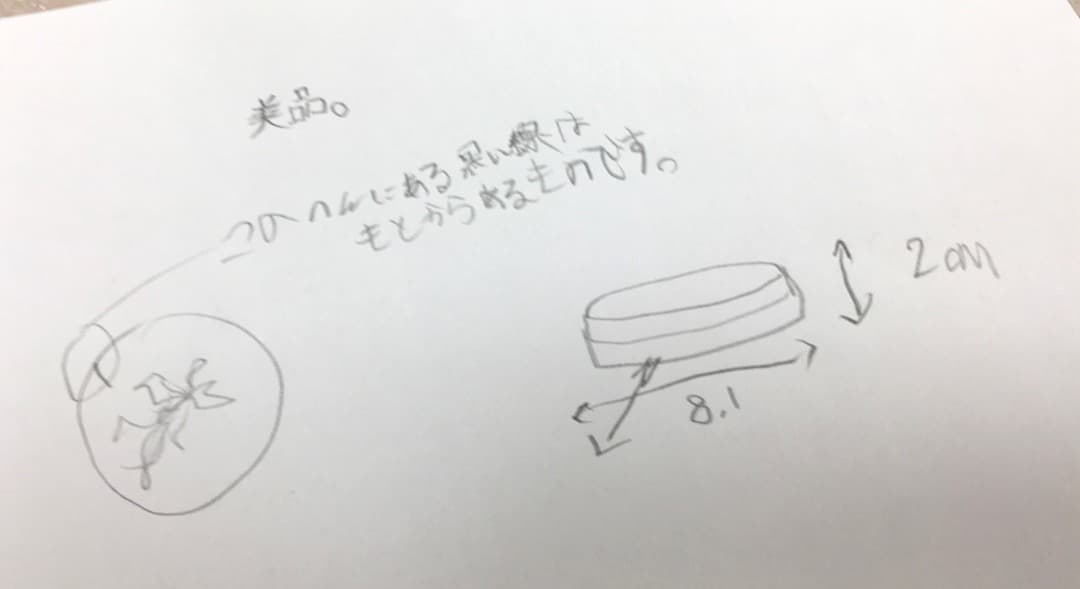 美品。
このへんにある黒い線は
もとからあるものです。
2cm
8.1